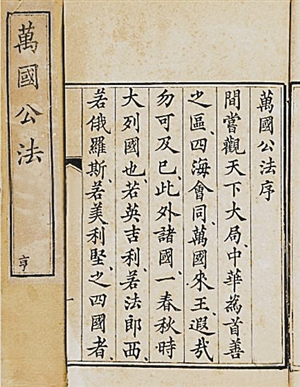 萬國公法序
間嘗觀天下大局、中華為首善
之區、四海會同、萬國來王、遐哉
勿可及已、此外諸國、一春秋時
大列國也、若英吉利、若法郎西、
若俄羅斯、若美利堅、之四國者
萬國公法
亨